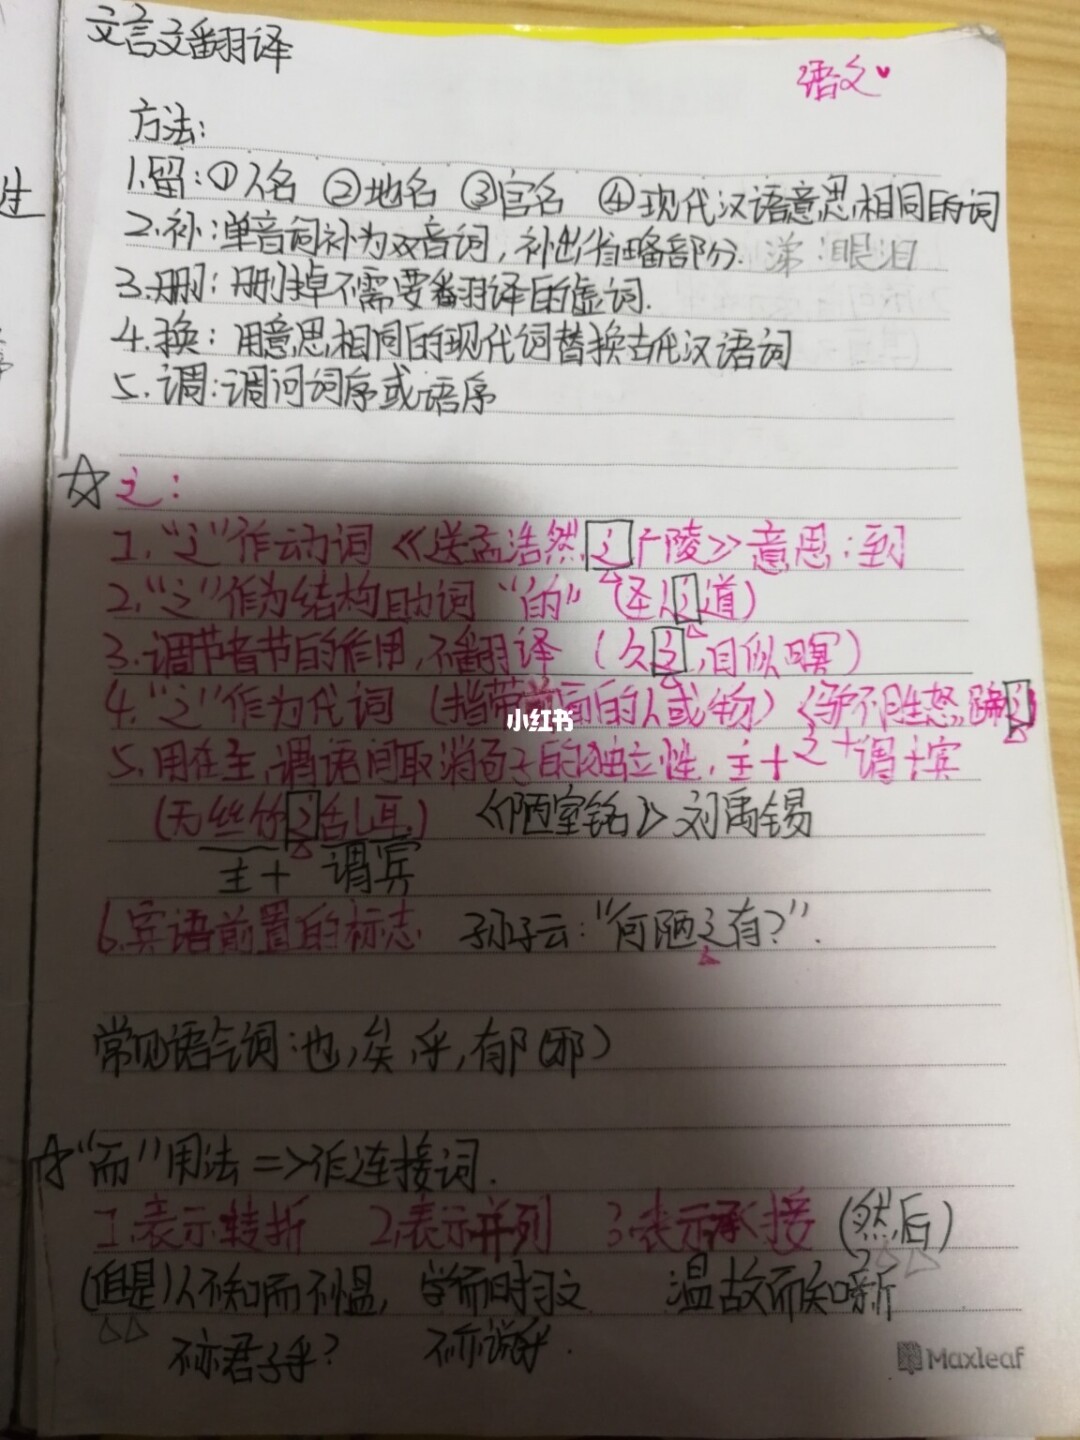 文言文翻译
语文
方法:
1.留:①人名 ②地名 ③官名 ④现代汉语意思相同的词
2.补:单音词补为双音词,补出省略部分. 涕:眼泪
3.删:删掉不需要翻译的虚词.
4.换:用意思相同的现代词替换古代汉语词
5.调:调问词序或语序
☆之:
1."之"作动词《送孟浩然之广陵》意思:到
2."之"作为结构助词 "的" (圣人之道)
3.调节音节的作用,不翻译 (久之,目似瞑)
4."之"作为代词 (指带前面的人或物)《驴不胜怒,蹄之》
5.用在主,谓语间取消句子的独立性,主+之+谓+宾
(无丝竹之乱耳) 《陋室铭》刘禹锡
主+ 谓宾
6.宾语前置的标志 孔子云:"何陋之有?".
常见语气词:也,矣,乎,郁(邪)
☆"而"用法=>作连接词.
1.表示转折 2.表示并列 3.表示承接 (然后)
(但是)人不知而不愠, 学而时习之 温故而知新
不亦君子乎? 不亦说乎.
Maxleaf
小红书
生